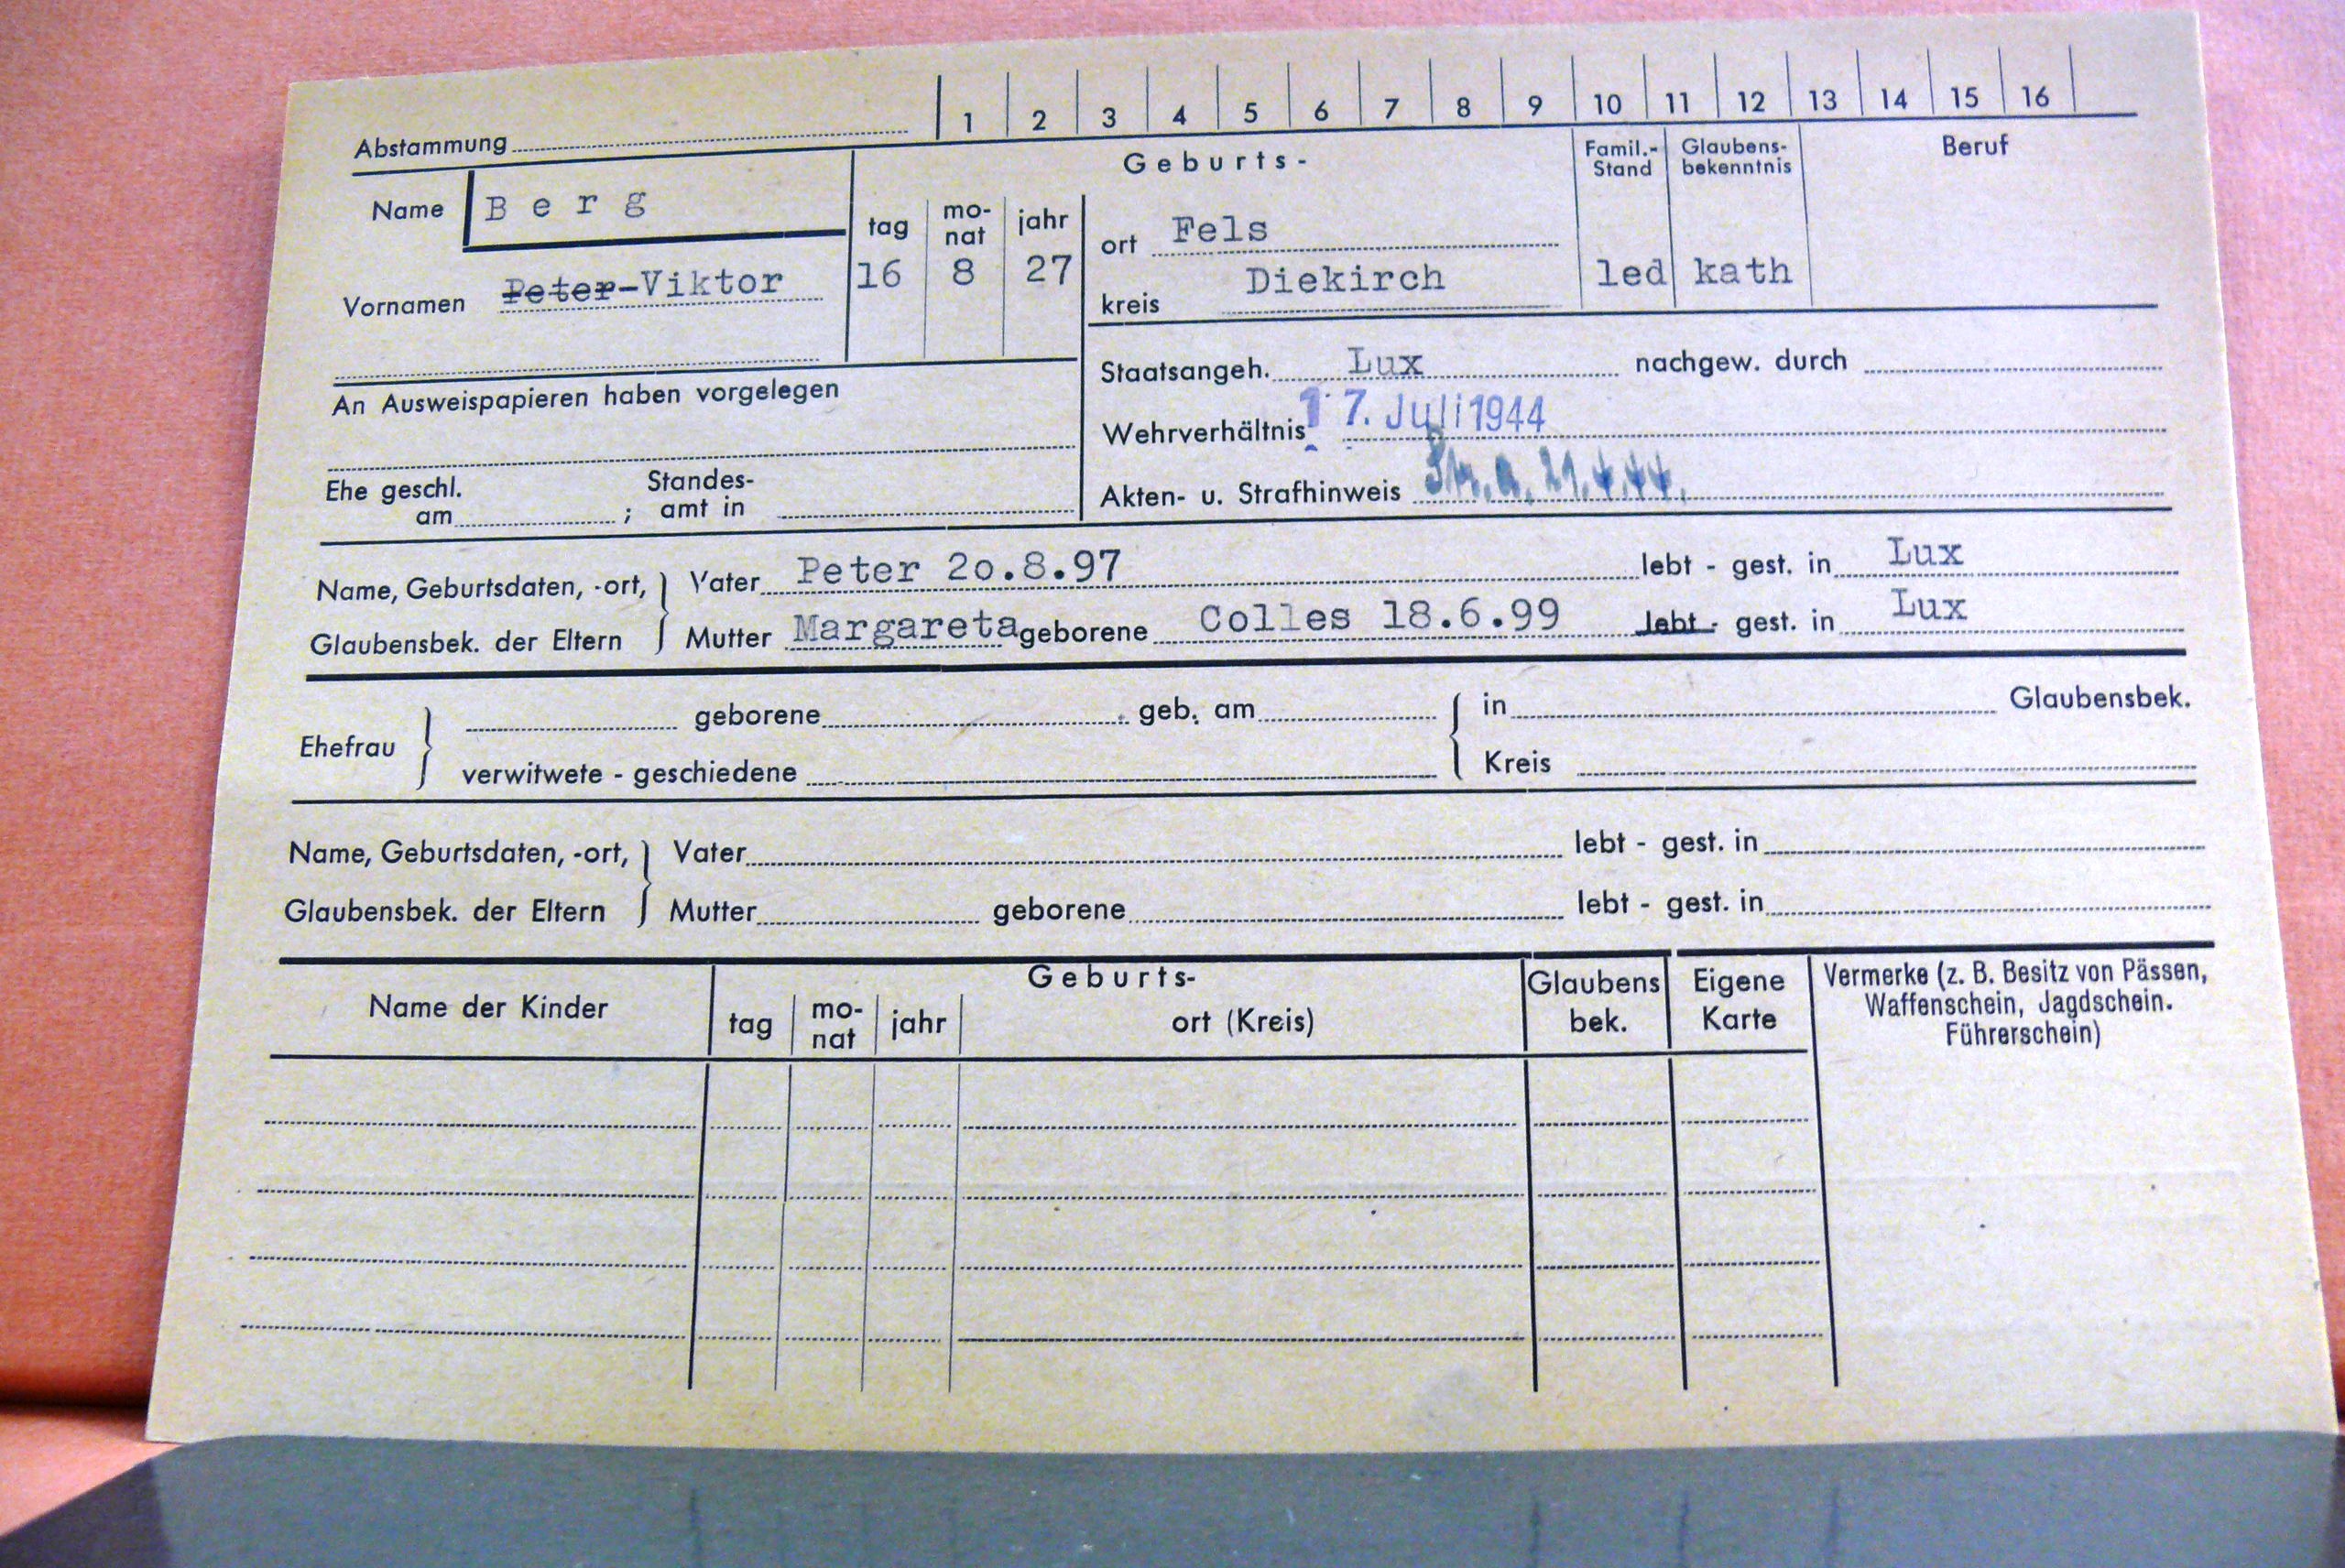 Abstammung 1 2 3 4 5 6 7 8 9 10 11 12 13 14 15 16
Name Berg
Vornamen Peter-Viktor
Geburts-
tag mo-nat jahr
16 8 27
ort Fels
kreis Diekirch
Famil.-Stand
led
Glaubens-bekenntnis
kath
Beruf
An Ausweispapieren haben vorgelegen
Ehe geschl. am ; Standes-amt in
Staatsangeh. Lux nachgew. durch
Wehrverhältnis 17. Juli 1944
Akten- u. Strafhinweis 21.4.44.
Name, Geburtsdaten, -ort, Vater Peter 20.8.97 lebt - gest. in Lux
Glaubensbek. der Eltern Mutter Margareta geborene Colles 18.6.99 lebt - gest. in Lux
Ehefrau geborene geb. am in Glaubensbek.
verwitwete - geschiedene Kreis
Name, Geburtsdaten, -ort, Vater lebt - gest. in
Glaubensbek. der Eltern Mutter geborene lebt - gest. in
Name der Kinder
Geburts-
tag mo-nat jahr ort (Kreis)
Glaubens bek.
Eigene Karte
Vermerke (z. B. Besitz von Pässen,
Waffenschein, Jagdschein.
Führerschein)